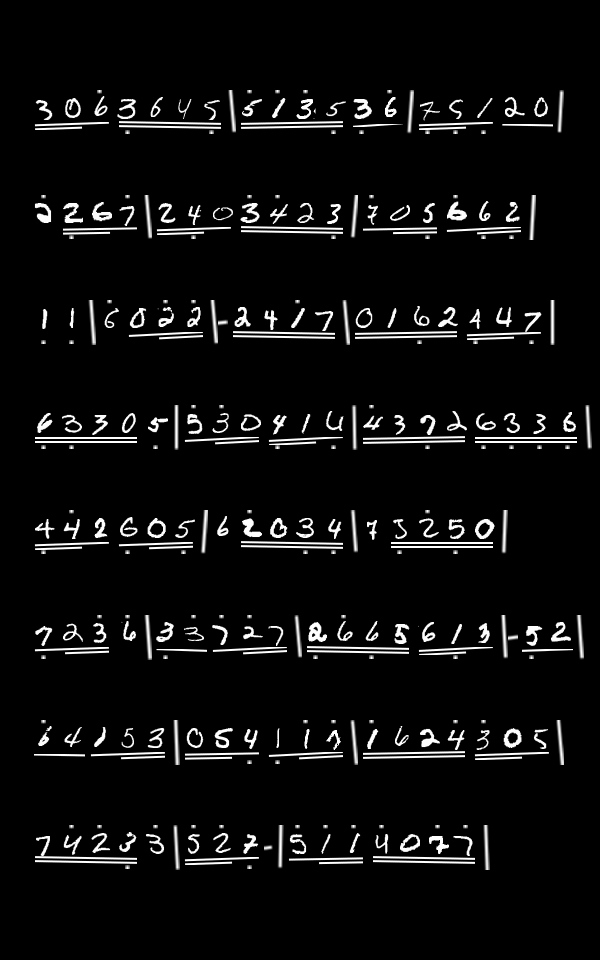 3 0 6 3 6 4 5 | 5 1 3 5 3 6 | 7 5 1 2 0 |
2 2 6 7 | 2 4 0 3 4 2 3 | 7 0 5 6 6 2 |
1 1 | 6 0 2 2 | - 2 4 1 7 | 0 1 6 2 4 4 7 |
6 3 3 0 5 | 5 3 0 4 1 4 | 4 3 7 2 6 3 3 6 |
4 4 2 6 0 5 | 6 2 0 3 4 | 7 3 2 5 0 |
7 2 3 6 | 3 3 7 2 7 | 2 6 6 5 6 1 3 | - 5 2 |
6 4 1 5 3 | 0 5 4 1 1 7 | 1 6 2 4 3 0 5 |
7 4 2 3 3 | 5 2 7 - | 5 1 1 4 0 7 7 |